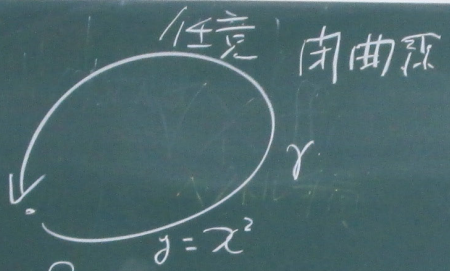 任意 閉曲線
γ
y = x²